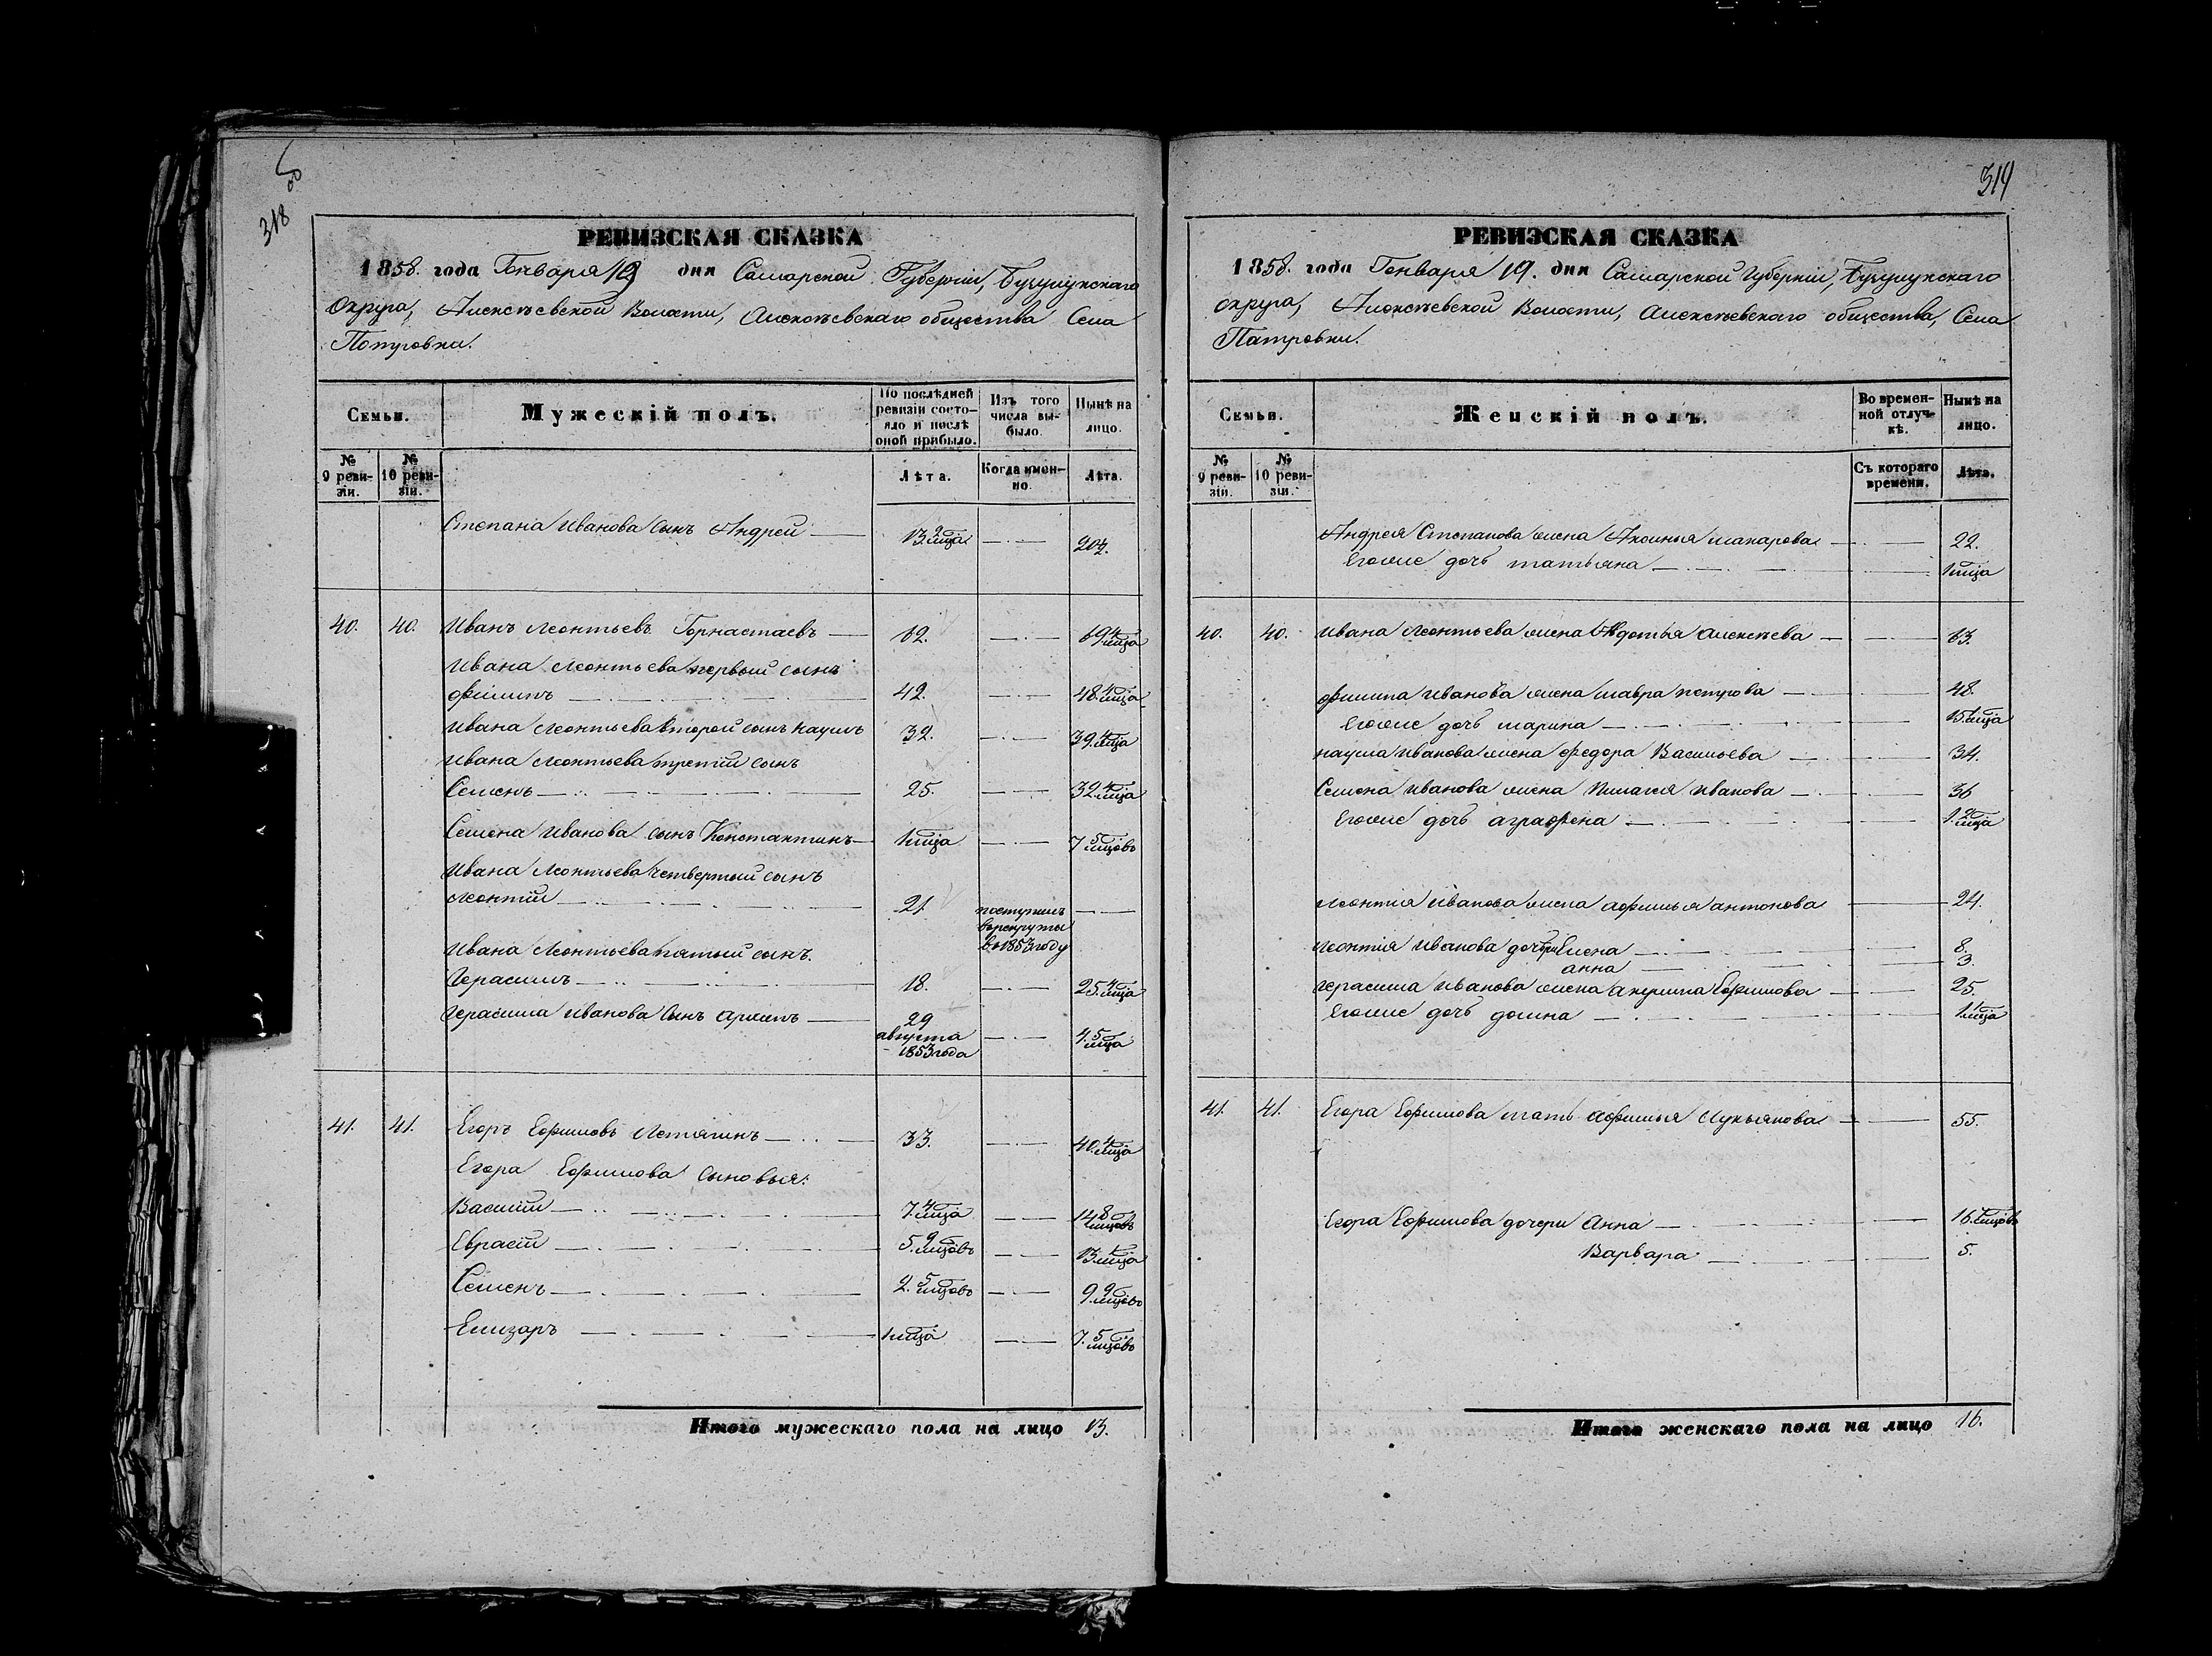 318
РЕВИЗСКАЯ СКАЗКА
1858. года Генваря 19 дня Самарской Губерніи, Бузулукскаго
Округа, Алексѣевской Волости, Алексѣевскаго общества Села
Патровки.
Семьи.
Мужескій полъ.
По послѣдней ревизіи состояло и послѣ оной прибыло.
Изъ того числа выбыло.
Нынѣ на лицо.
№ 9 ревизіи.
№ 10 ревизіи.
Лѣта.
Когда именно.
Лѣта.
Степана Иванова сынъ Андрей 13. 2 мца 20
40. 40. Иванъ Леонтьевъ Горнастаевъ 62. 69. 4 мца
Ивана Леонтьева первый сынъ
Филипъ 42. 48. 4 мца
Ивана Леонтьева второй сынъ Наумъ 32. 39. 4 мца
Ивана Леонтьева третій сынъ
Семенъ 25. 32. 4 мца
Семена Иванова сынъ Константинъ 1 мца 7. 5 мцовъ
Ивана Леонтьева четвертый сынъ
Леонтій 21. поступилъ
в рекруты
в 1853 году
Ивана Леонтьева пятый сынъ.
Герасимъ 18. 25. 4 мца
Герасима Иванова сынъ Архипъ 29
августа
1853 года 4. 5 мца
41. 41. Егоръ Ефимовъ 33. 40. 4 мца
Егора Ефимова сыновья:
Василій 7. 4 мца 14. 8 мцовъ
5. 9 мцовъ 13. 1 мца
Семенъ 2. 5 мцовъ 9. 9 мцовъ
Елизаръ 1 мца 7. 5 мцовъ
Итого мужескаго пола на лицо 13.
319
РЕВИЗСКАЯ СКАЗКА
1858. года Генваря 19. дня Самарской Губерніи, Бузулукскаго
округа, Алексѣевской Волости, Алексѣевскаго общества, Села
Патровки.
Семьи.
Женскій полъ.
Во временной отлучкѣ.
Нынѣ на лицо.
№ 9 ревизіи.
№ 10 ревизіи.
Съ котораго времени.
Лѣта.
Андрея Степанова жена Аксинья макарова 22.
Егоже дочь татьяна 1 мца
40. 40. Ивана Леонтьева жена Авдотья Алексѣева 63.
Филипа Иванова жена мавра петрова 48.
Егоже дочь марина 15. 1 мца
наума Иванова жена федора Васильева 34.
Семена Иванова жена Пилагея Иванова 36
Егоже дочь аграфена 1. 2 мца
Леонтія Иванова жена афимья антонова 24.
Леонтія Иванова дочери Елена 8.
анна 3.
Герасима Иванова жена акулина Ефимова 25
Егоже дочь домна 1. 1 мца
41. 41. Егора Ефимова мать афимья Лукьянова 55.
Егора Ефимова дочери Анна 16. мцовъ
Варвара 5.
Итого женскаго пола на лицо 16.